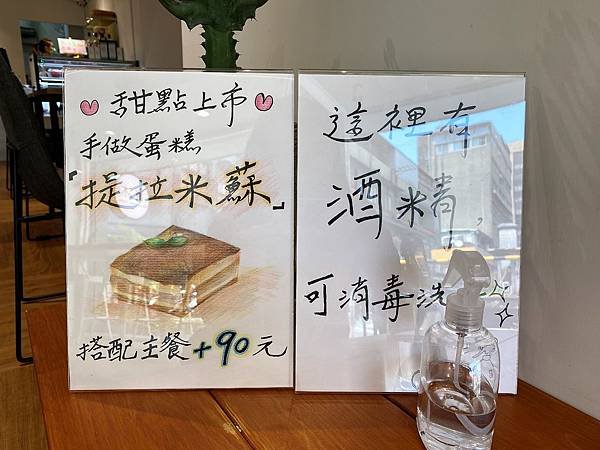 甜點上市
手做蛋糕
「提拉米蘇」
搭配主餐+90元
這裡有
酒精,
可消毒洗